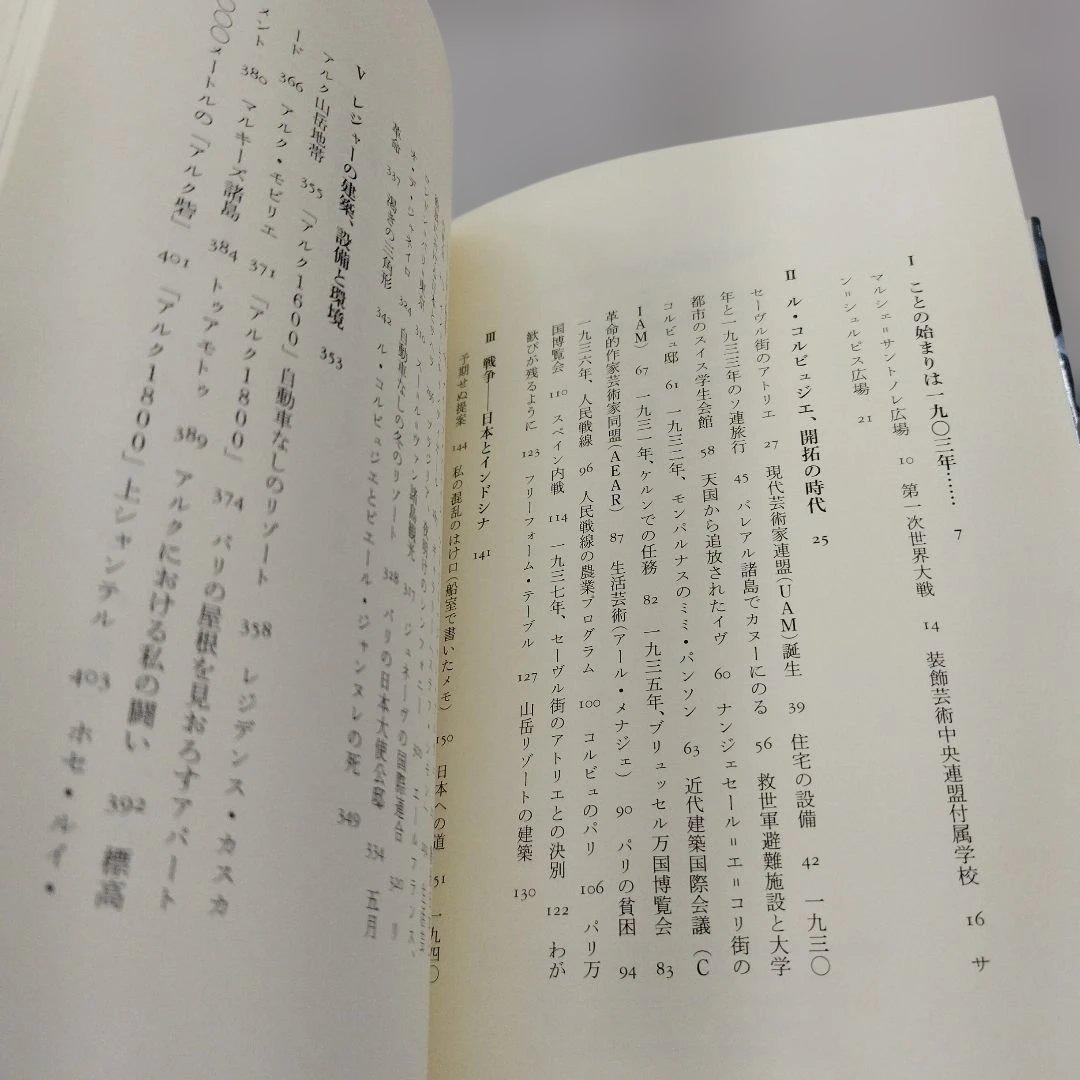 I ことの始まりは一九〇三年…… 7
マルシェ=サントノレ広場 10 第一次世界大戦 14 装飾芸術中央連盟付属学校 16 サ
ン=シュルピス広場 21
II ル・コルビュジエ、開拓の時代 25
セーヴル街のアトリエ 27 現代芸術家連盟(UAM)誕生 39 住宅の設備 42 一九三〇
年と一九三三年のソ連旅行 45 バレアル諸島でカヌーにのる 56 救世軍避難施設と大学
都市のスイス学生会館 58 天国から追放されたイヴ 60 ナンジェセール=エ=コリ街の
コルビュ邸 61 一九三二年、モンパルナスのミミ・パンソン 63 近代建築国際会議(C
IAM) 67 一九三一年、ケルンでの任務 82 一九三五年、ブリュッセル万国博覧会 83
革命的作家芸術家同盟(AEAR) 87 生活芸術(アール・メナジェ) 90 パリの貧困 94
一九三六年、人民戦線 96 人民戦線の農業プログラム 100 コルビュのパリ 106 パリ万
国博覧会 110 スペイン内戦 114 一九三七年、セーヴル街のアトリエとの決別 122 わが
歓びが残るように 123 フリーフォーム・テーブル 127 山岳リゾートの建築 130
III 戦争——日本とインドシナ 141
予期せぬ提案 144 私の混乱のはけ口(船室で書いたメモ) 150 日本への道 151 一九四〇
ネ・デ・ジャネイロ 324 自動車なしの冬のリゾート 328 パリの日本大使公邸 334 五月
革命 337 渇きの三角形 342 ル・コルビュジエとピエール・ジャンヌレの死 349
V レジャーの建築、設備と環境 353
アルク山岳地帯 355 「アルク1600」自動車なしのリゾート 358 レジデンス・カスカ
ード 366 アルク・モビリエ 371 「アルク1800」 374 パリの屋根を見おろすアパート
メント 380 マルキーズ諸島 384 トゥアモトゥ 389 アルクにおける私の闘い 392 標高
〇〇〇メートルの「アルク砦」 401 「アルク1800」上シャンテル 403 ホセ・ルイ・